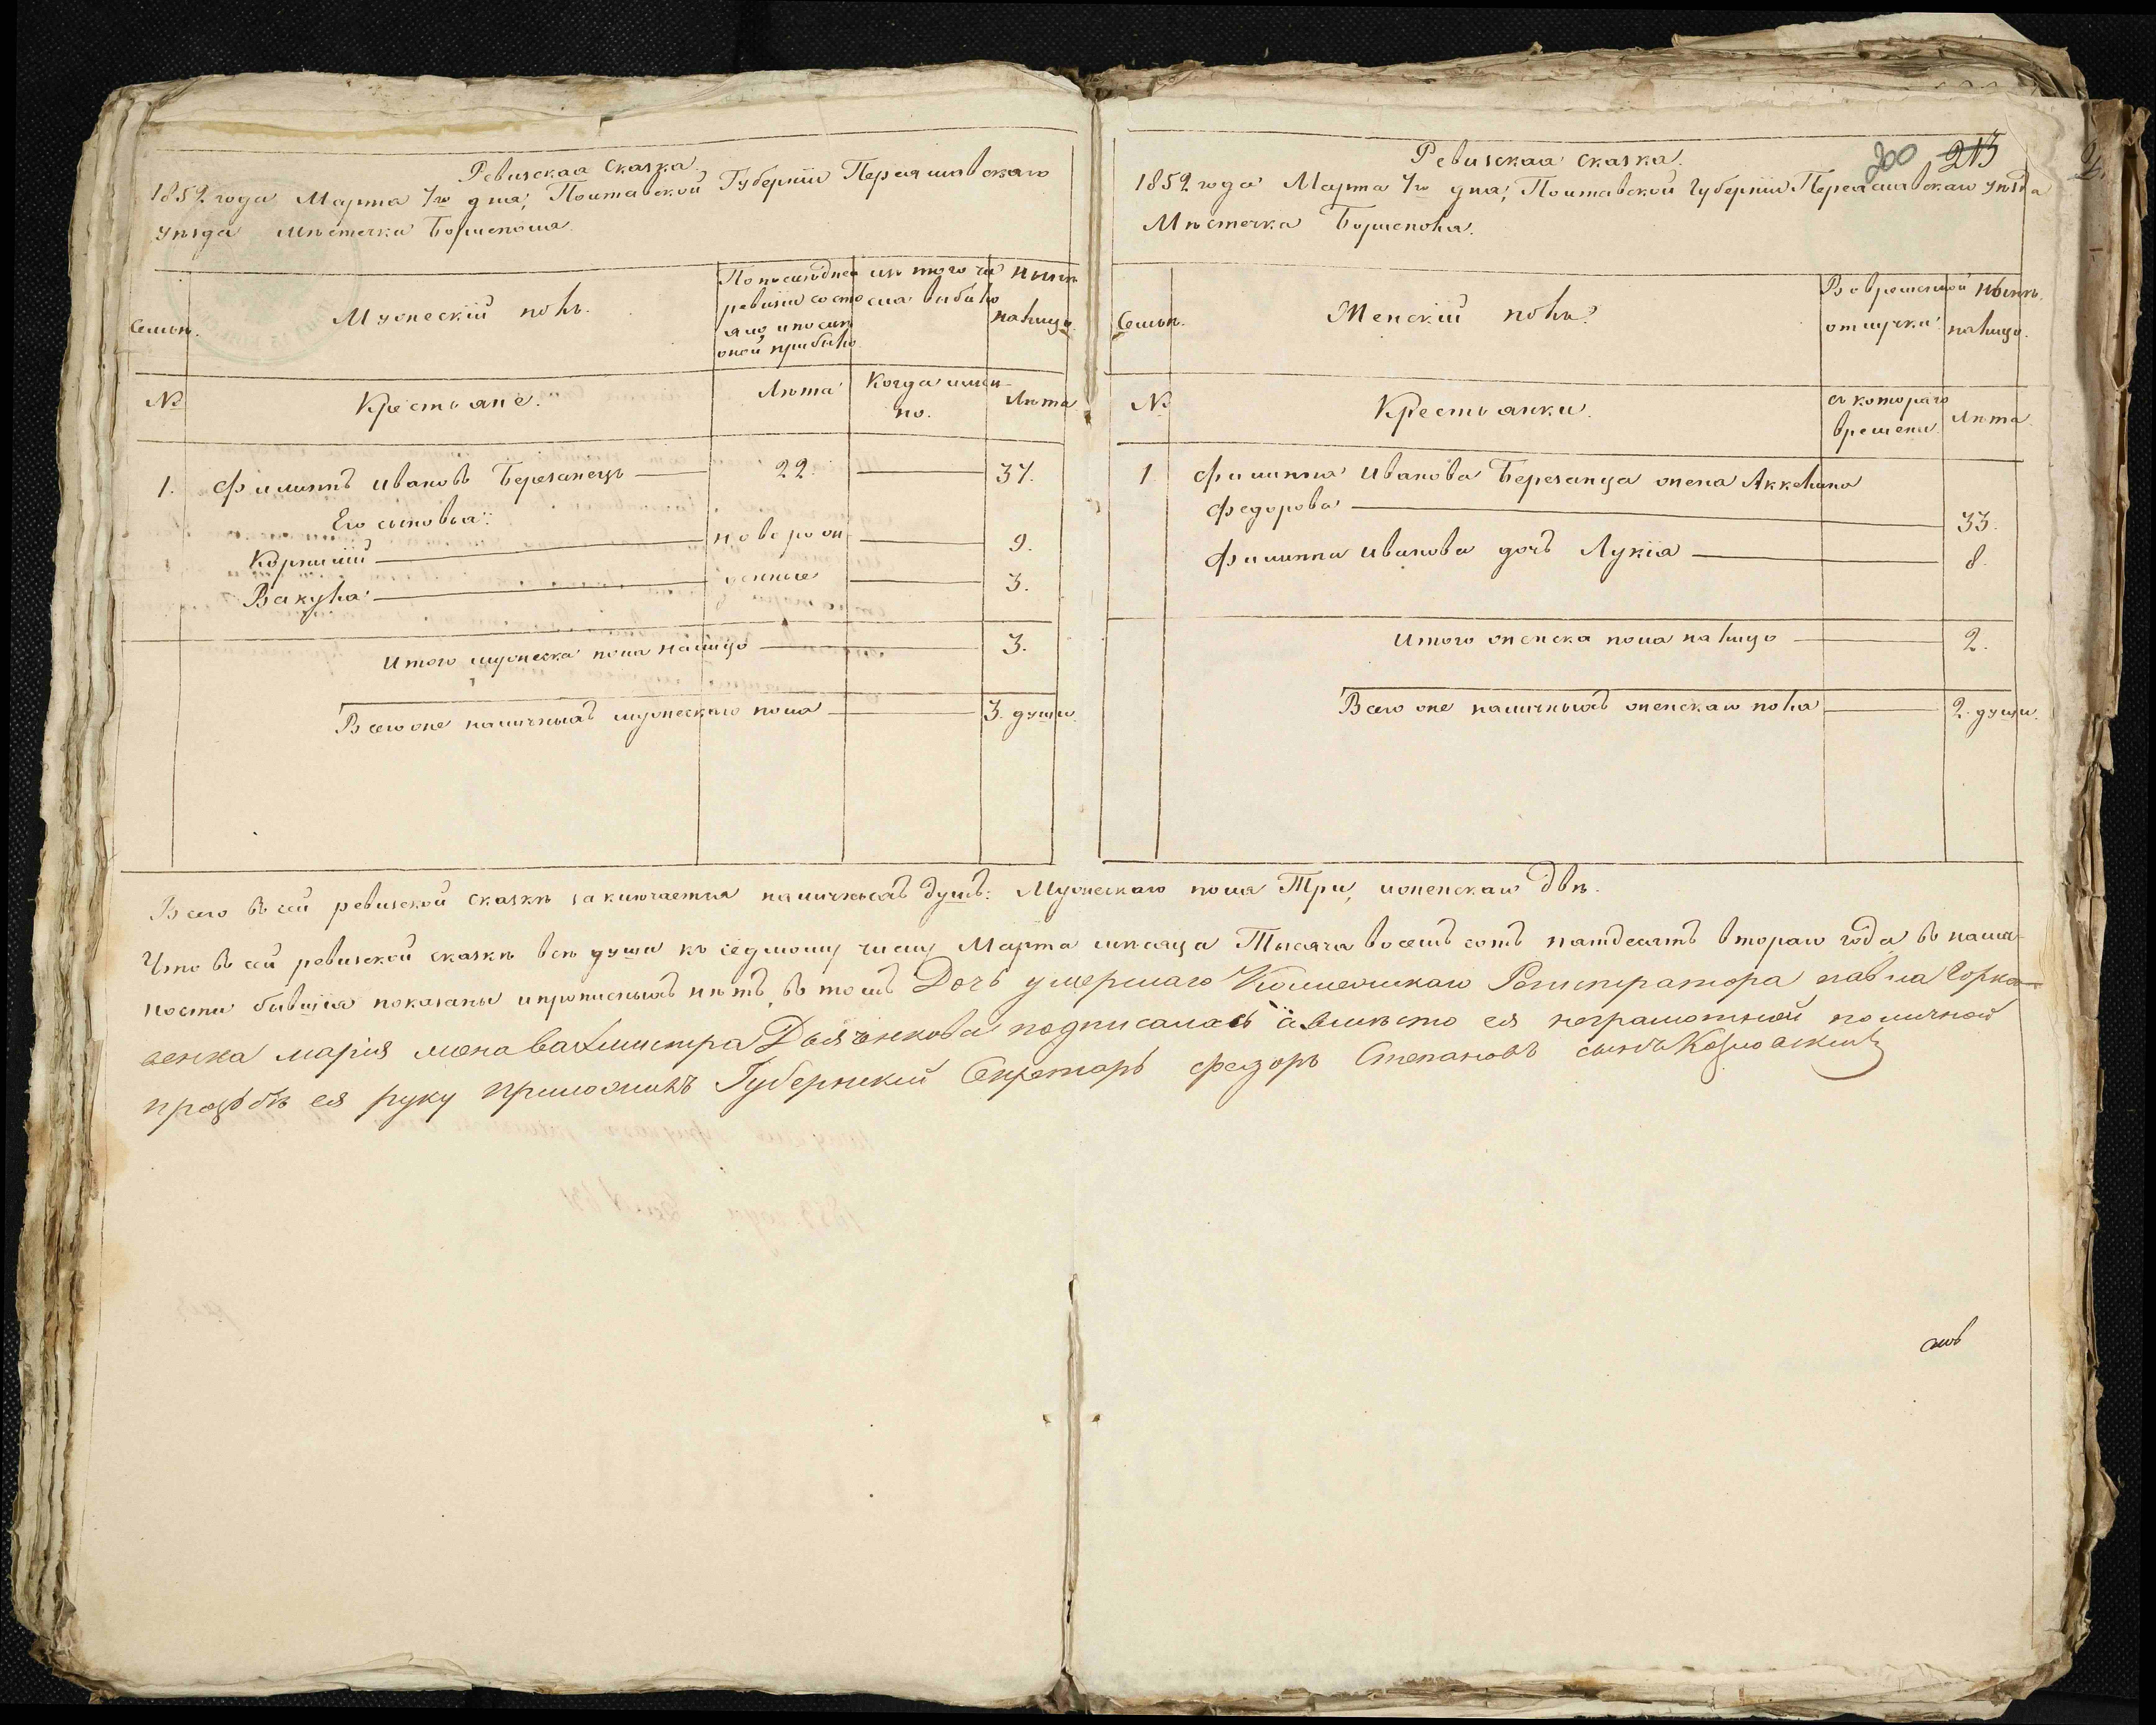 Ревизская сказка.
1852 года Марта 7го дня, Полтавской Губернiи Переяславскаго
уѣзда мѣстечка Борисполя.
Семьи.
Мужескiй полъ.
По последней
ревизiи состо
яло и после
оной прибыло
изъ того чи
сла выбыло
Нынѣ
налицо
№
Крестьяне.
Лѣта
Когда имен-
но.
Лѣта
1. Филиппъ Ивановъ Березанецъ 22. 37.
Его сыновья:
Корнилiй новорож 9.
Вакула денные 3.
Итого мужеска пола налицо 3.
Всего же наличныхъ мужескаго пола 3. души.
200 213
Ревизская сказка.
1852 года Марта 7го дня, Полтавской Губернiи Переяславскаго уѣзда
Мѣстечка Борисполя.
Семьи.
Женскiй полъ.
Во временной
отлучки
Нынѣ
налицо.
№
Крестьянки.
съ котораго
времени.
Лѣта.
1 Филиппа Иванова Березанца жена Аккелина
Федорова 33.
Филиппа Иванова дочь Лукiя 8.
Итого женска пола налицо 2.
Всего же наличныхъ женскаго пола 2. души.
Всего въ сей ревизской сказкѣ заключается наличныхъ душъ: Мужескаго пола Три, иженскаго Двѣ.
Что въ сей ревизской сказкѣ всѣ души къ седмому числу Марта месяца Тысяча восемъ сотъ пятдесятъ втораго года въ налич
ности бывшiя показаны ипрописныхъ нѣтъ, въ томъ Дочь умершаго Колежскаго Регистратора павла
марiя жена вахмистра Дьячнкова подписалась а вмѣсто ея неграмотной поличной
прозьбѣ ея руку приложилъ Губернскiй Секретарь федоръ Степановъ сынъ